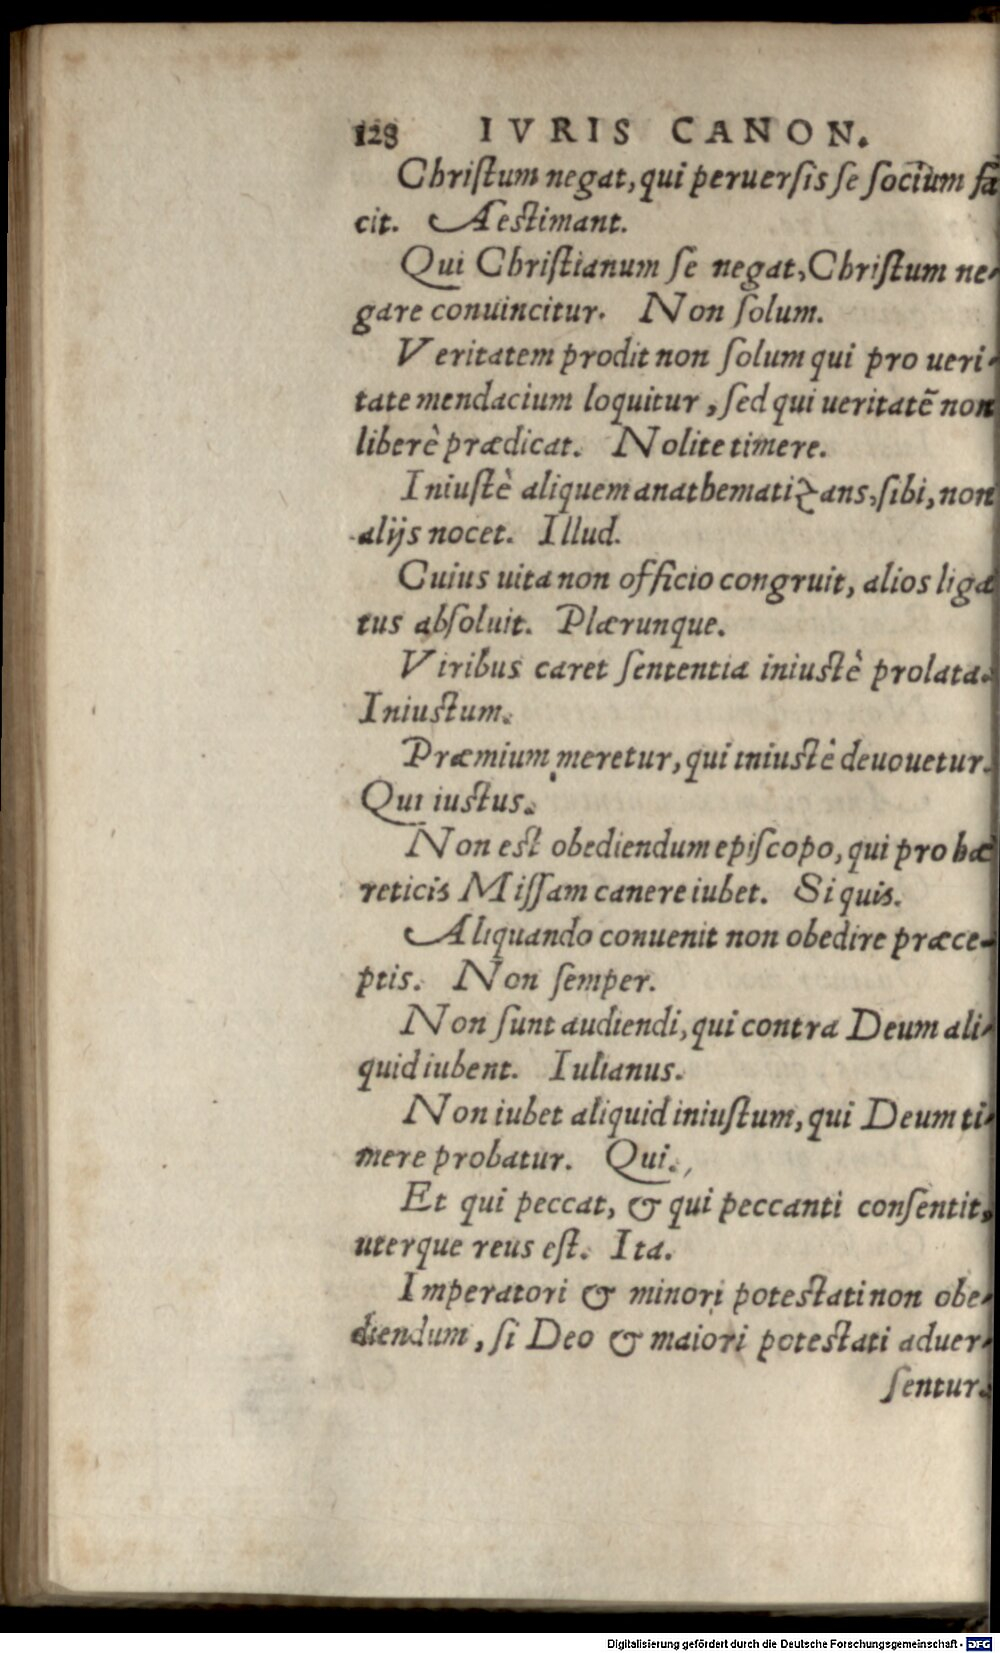 128 IVRIS CANON.
Chriſtum negat, qui peruerſis ſe ſociũm fa
cit. Aeſtimant.
Qui Chriſtianum ſe negat, Chriſtum ne-
gare conuincitur. Non ſolum.
Veritatem prodit non ſolum qui pro ueri-
tate mendacium loquitur, ſed qui ueritatẽ non
liberè prædicat. Nolite timere.
Iniuſtè aliquem anathematizans, ſibi, non
alijs nocet. Illud.
Cuius uita non officio congruit, alios liga
tus abſoluit. Plærunque.
Viribus caret ſententia iniuſtè prolata.
Iniuſtum.
Præmium meretur, qui iniuſtè deuouetur.
Qui iuſtus.
Non eſt obediendum epiſcopo, qui pro hæ
reticis Miſſam canere iubet. Si quis.
Aliquando conuenit non obedire præce-
ptis. Non ſemper.
Non ſunt audiendi, qui contra Deum ali-
quid iubent. Iulianus.
Non iubet aliquid iniuſtum, qui Deum ti-
mere probatur. Qui.
Et qui peccat, & qui peccanti conſentit,
uterque reus eſt. Ita.
Imperatori & minori poteſtati non obe-
diendum, ſi Deo & maiori poteſtati aduer-
ſentur.
Digitalisierung gefördert durch die Deutsche Forschungsgemeinschaft - DFG